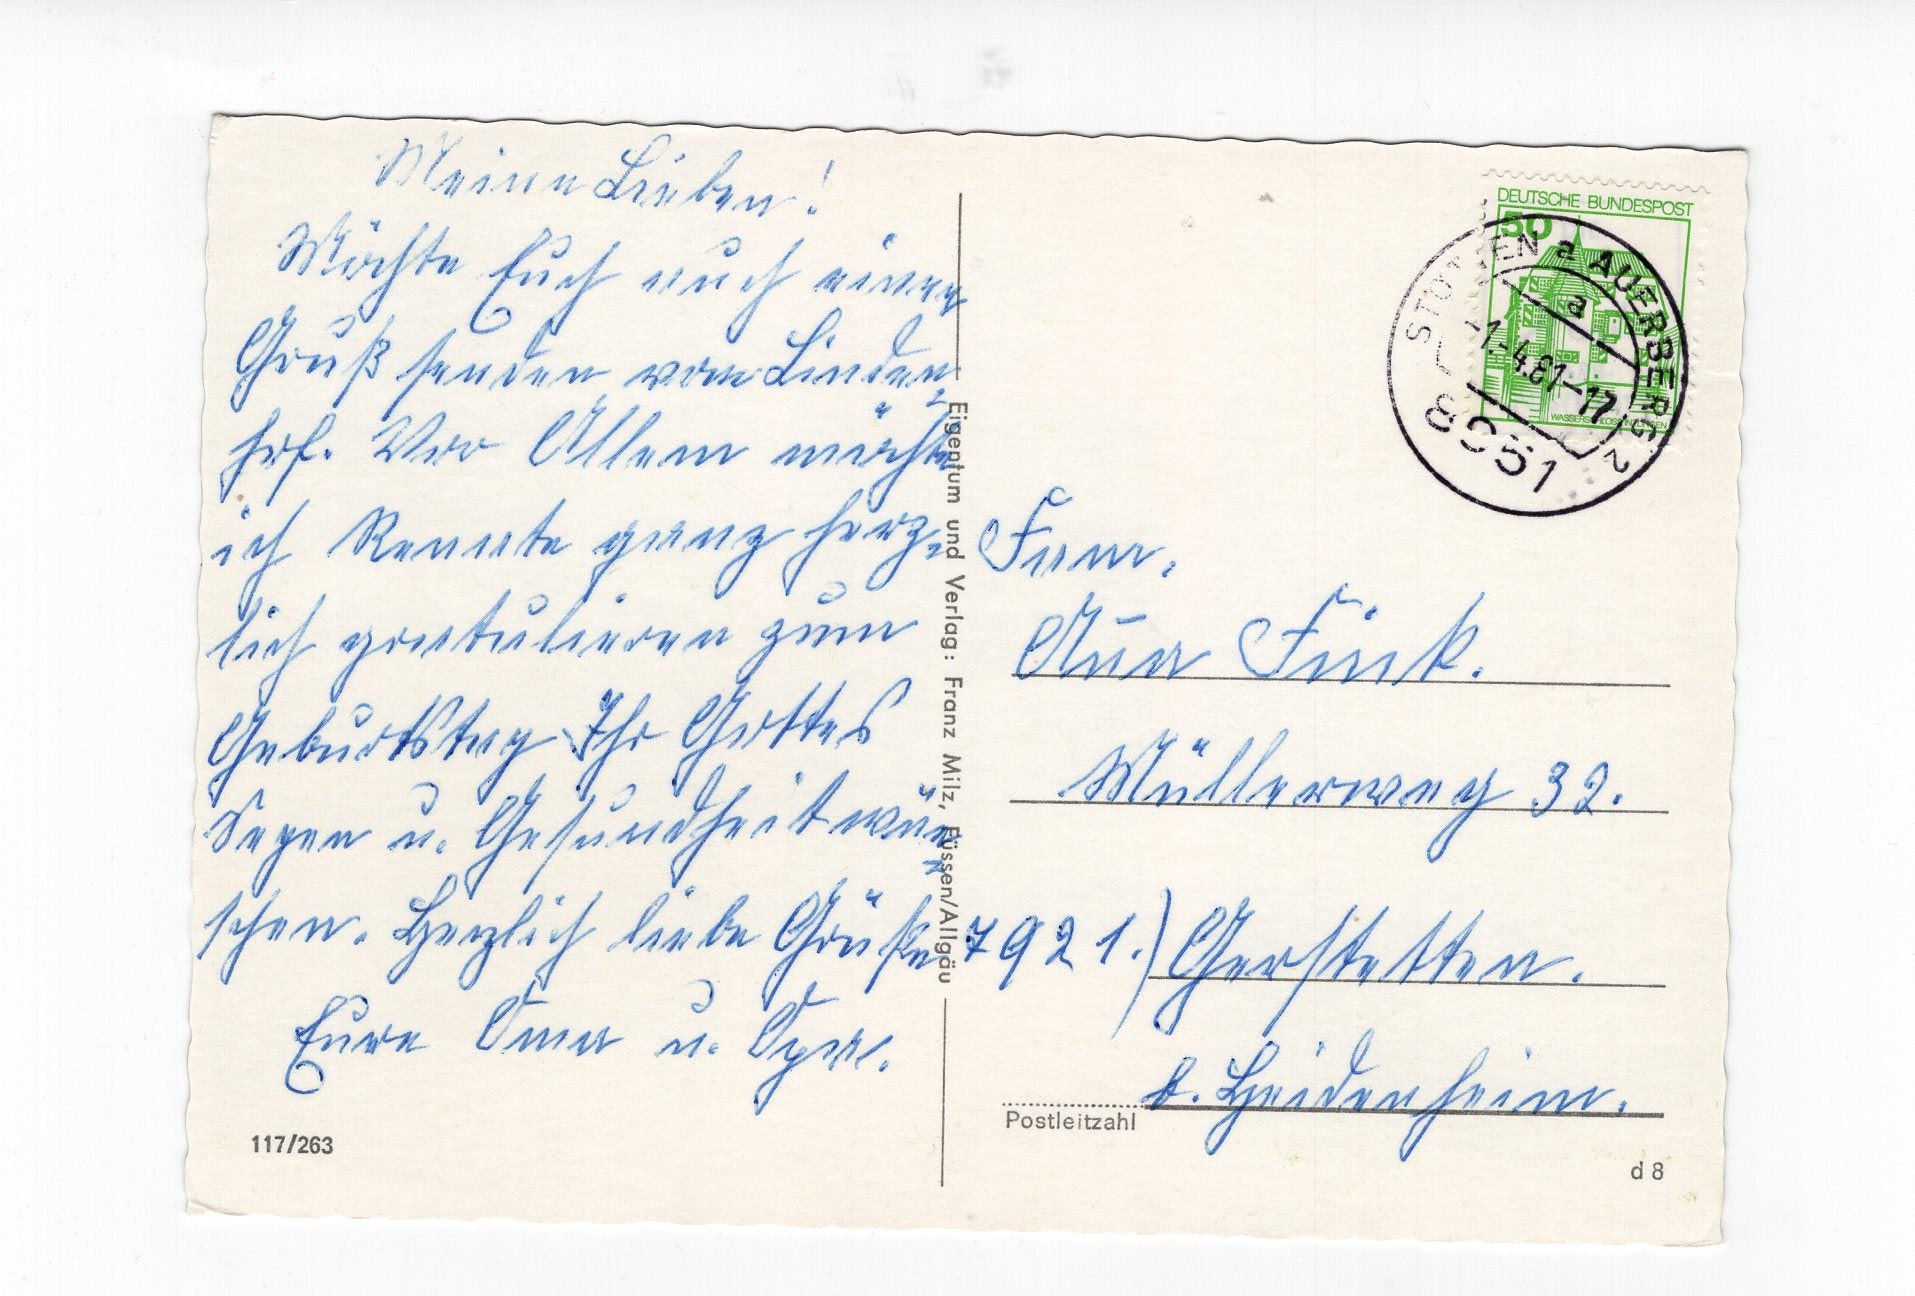 Meine Lieben!
Möchte Euch auch einen
Gruß senden vom Linden-
hof. Vor Allem möchte
ich Renate ganz herz-
lich gratulieren zum
Geburtstag Ihr Gottes
Segen u. Gesundheit wün-
schen. Herzlich liebe Grüße
Eure Oma u. Opa.
117/263
Eigentum und Verlag: Franz Milz, Füssen/Allgäu
DEUTSCHE BUNDESPOST
50
STÖTTEN a AUERBERG 2
a
-1.-4.81-17
8951
Fam.
Fink.
Müllerweg 32.
7921.) Gerstetten.
b. Heidenheim.
Postleitzahl
d 8